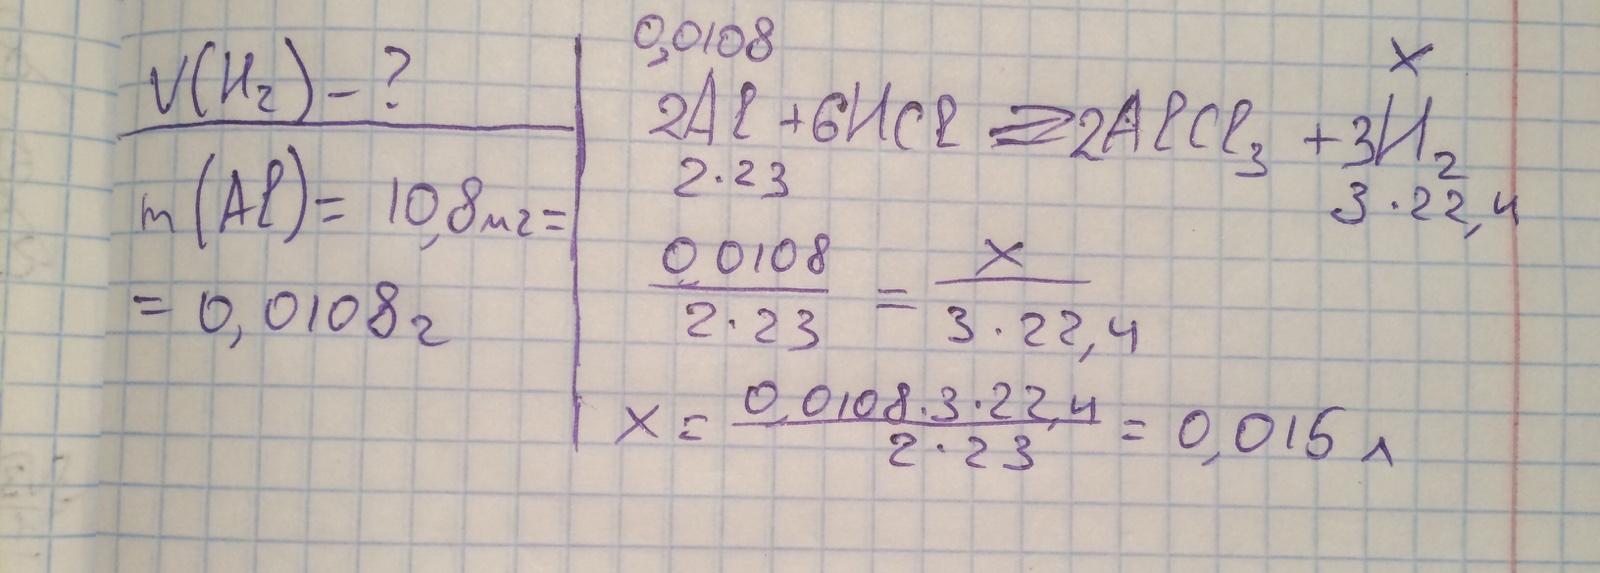 V(H₂) - ?
m(Al) = 10,8мг =
= 0,0108г
0,0108
x
2Al + 6HCl = 2AlCl₃ + 3H₂
2·23
3·22,4
0,0108/2·23 = x/3·22,4
x = 0,0108·3·22,4/2·23 = 0,016 л